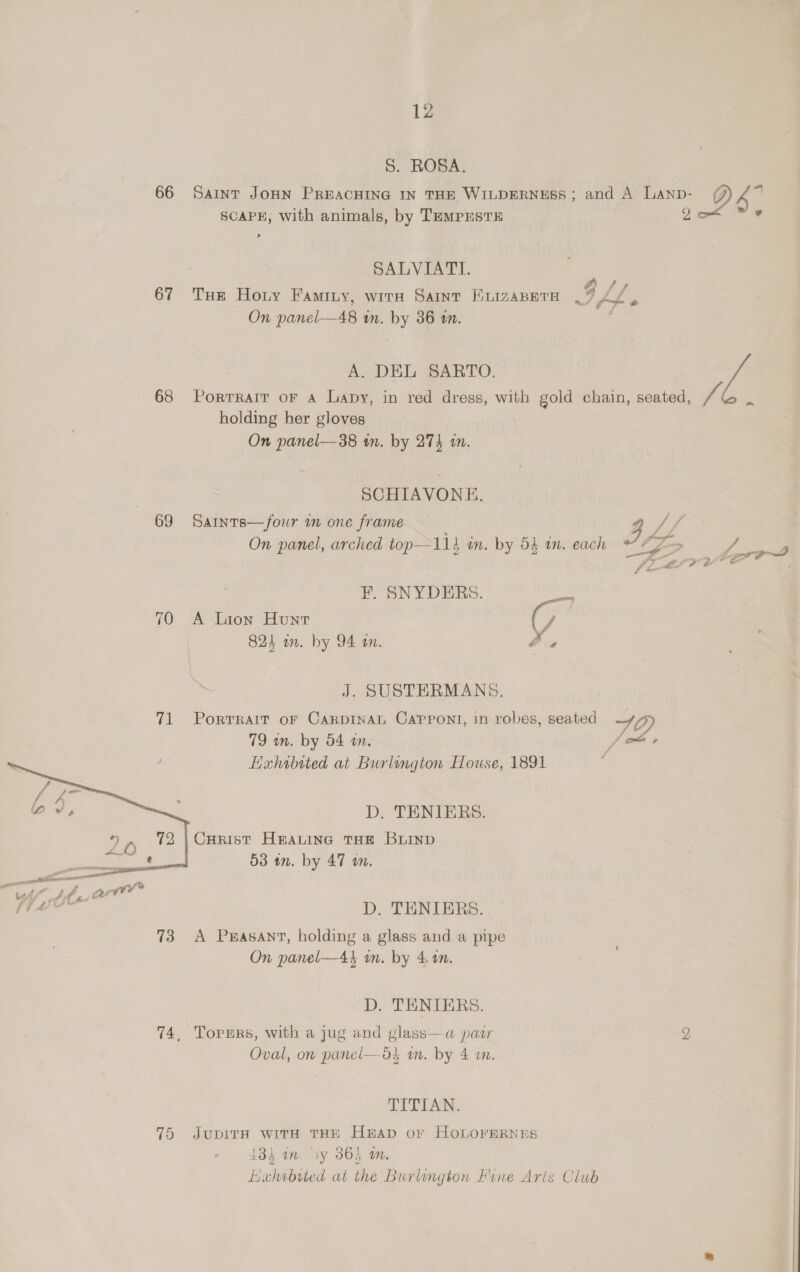 12
S. ROSA.
66 SAINT JOHN PREACHING IN THE WILDERNESS; and A LAND-
SCAPE, with animals, by TEMPESTE 2
SALVIATI.
67 THE HOLY FAMILY, WITH SAINT ELIZABETH
On panel—48 in. by 36 in.
A. DEL SARTO.
68 PORTRAIT OF A LADY, in red dress, with gold chain, seated,
holding her gloves
On panel—38 in. by 27½ in.
SCHIAVONE.
69 SAINTS—four in one frame
On panel, arched top—11½ in. by 5½ in. each
F. SNYDERS.
70 A LION HUNT
82½ in. by 94 in.
J. SUSTERMANS.
71 PORTRAIT OF CARDINAL CAPPONI, in robes, seated
79 in. by 54 in.
Exhibited at Burlington House, 1891
D. TENIERS.
72 CHRIST HEALING THE BLIND
53 in. by 47 in.
D. TENIERS.
73 A PEASANT, holding a glass and a pipe
On panel—4½ in. by 4 in.
D. TENIERS.
74 TOPERS, with a jug and glass—a pair 2
Oval, on panel—5½ in. by 4 in.
TITIAN.
75 JUDITH WITH THE HEAD OF HOLOFERNES
in. by 36½ in.
Exhibited at the Burlington Fine Arts Club